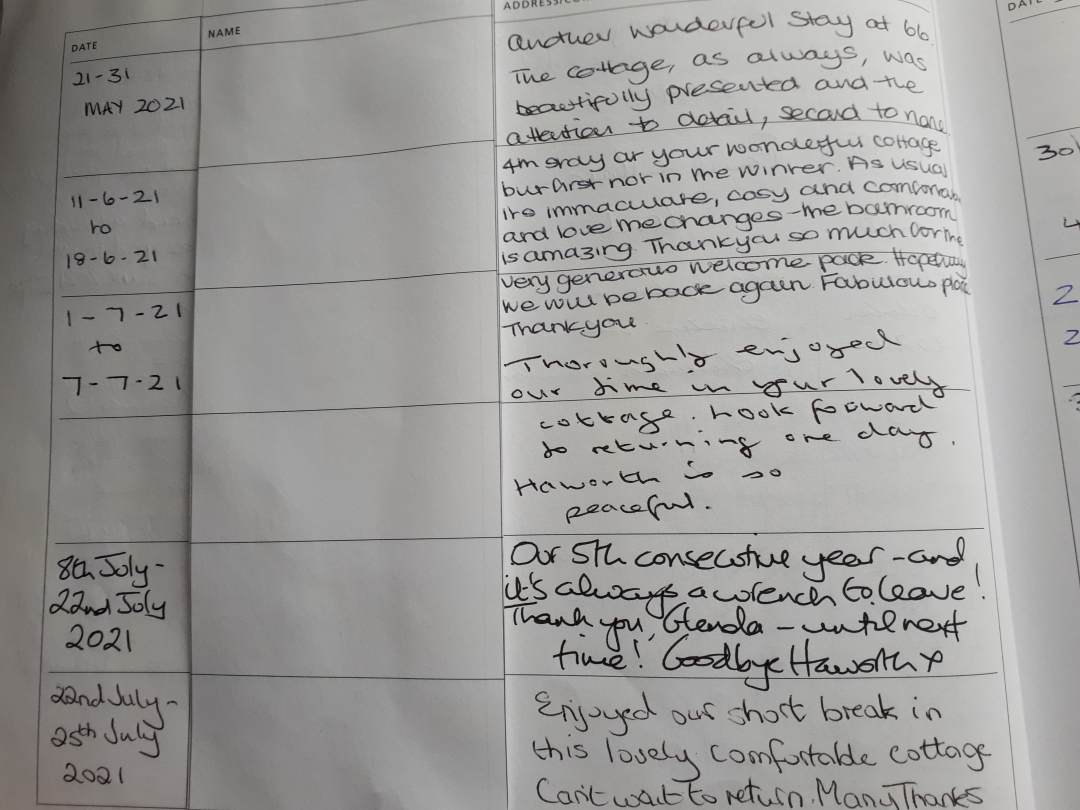 DATE
NAME
21-31
MAY 2021
Another wonderful stay at 66.
The cottage, as always, was
beautifully presented and the
attention to detail, second to none
11-6-21
to
18-6-21
4th stay at your wonderful cottage
but first not in the winter. As usual
its immaculate, cosy and comfortable
and love the changes - the bathroom
is amazing. Thankyou so much for the
very generous welcome pack. Hopefully
we will be back again. Fabulous place
Thankyou.
1-7-21
to
7-7-21
Thoroughly enjoyed
our time in your lovely
cottage. Look forward
to returning one day.
Haworth is so
peaceful.
8th July-
22nd July
2021
Our 5th consecutive year - and
it's always a wrench to leave!
Thank you, Glenda - until next
time! Goodbye Haworth x
22nd July-
25th July
2021
Enjoyed our short break in
this lovely comfortable cottage
Can't wait to return. Many Thanks
30
4
2
2